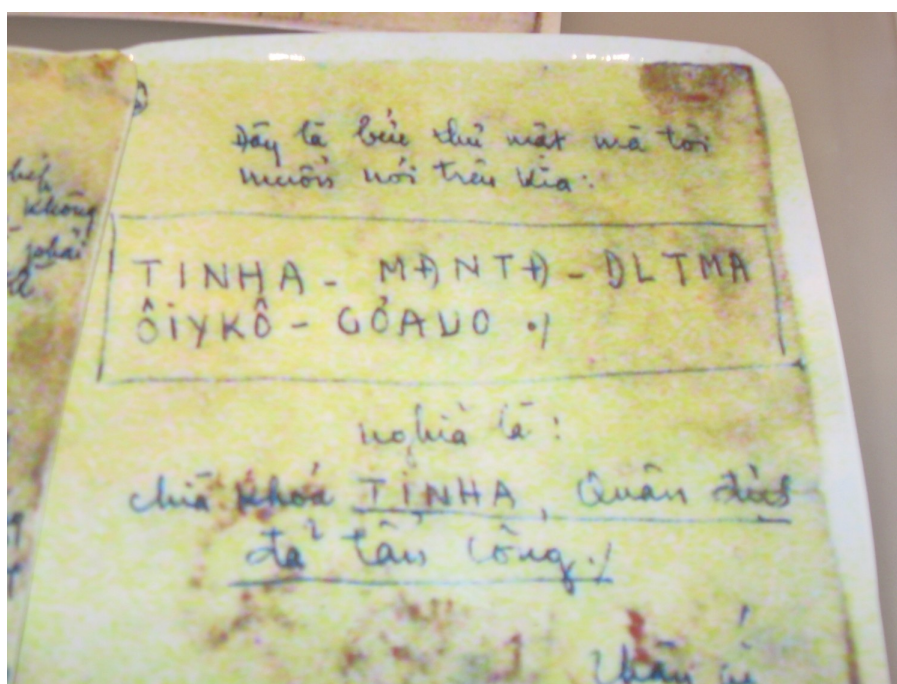 Đây là bức thư mật mã tôi
muốn nói trên kia:
TINHA - MĐNTĐ - ĐLTMA
ÔIYKÔ - GỎAUO ./
nghĩa là:
chìa khóa TINHA, Quân địch
đã tấn công./
không
phải